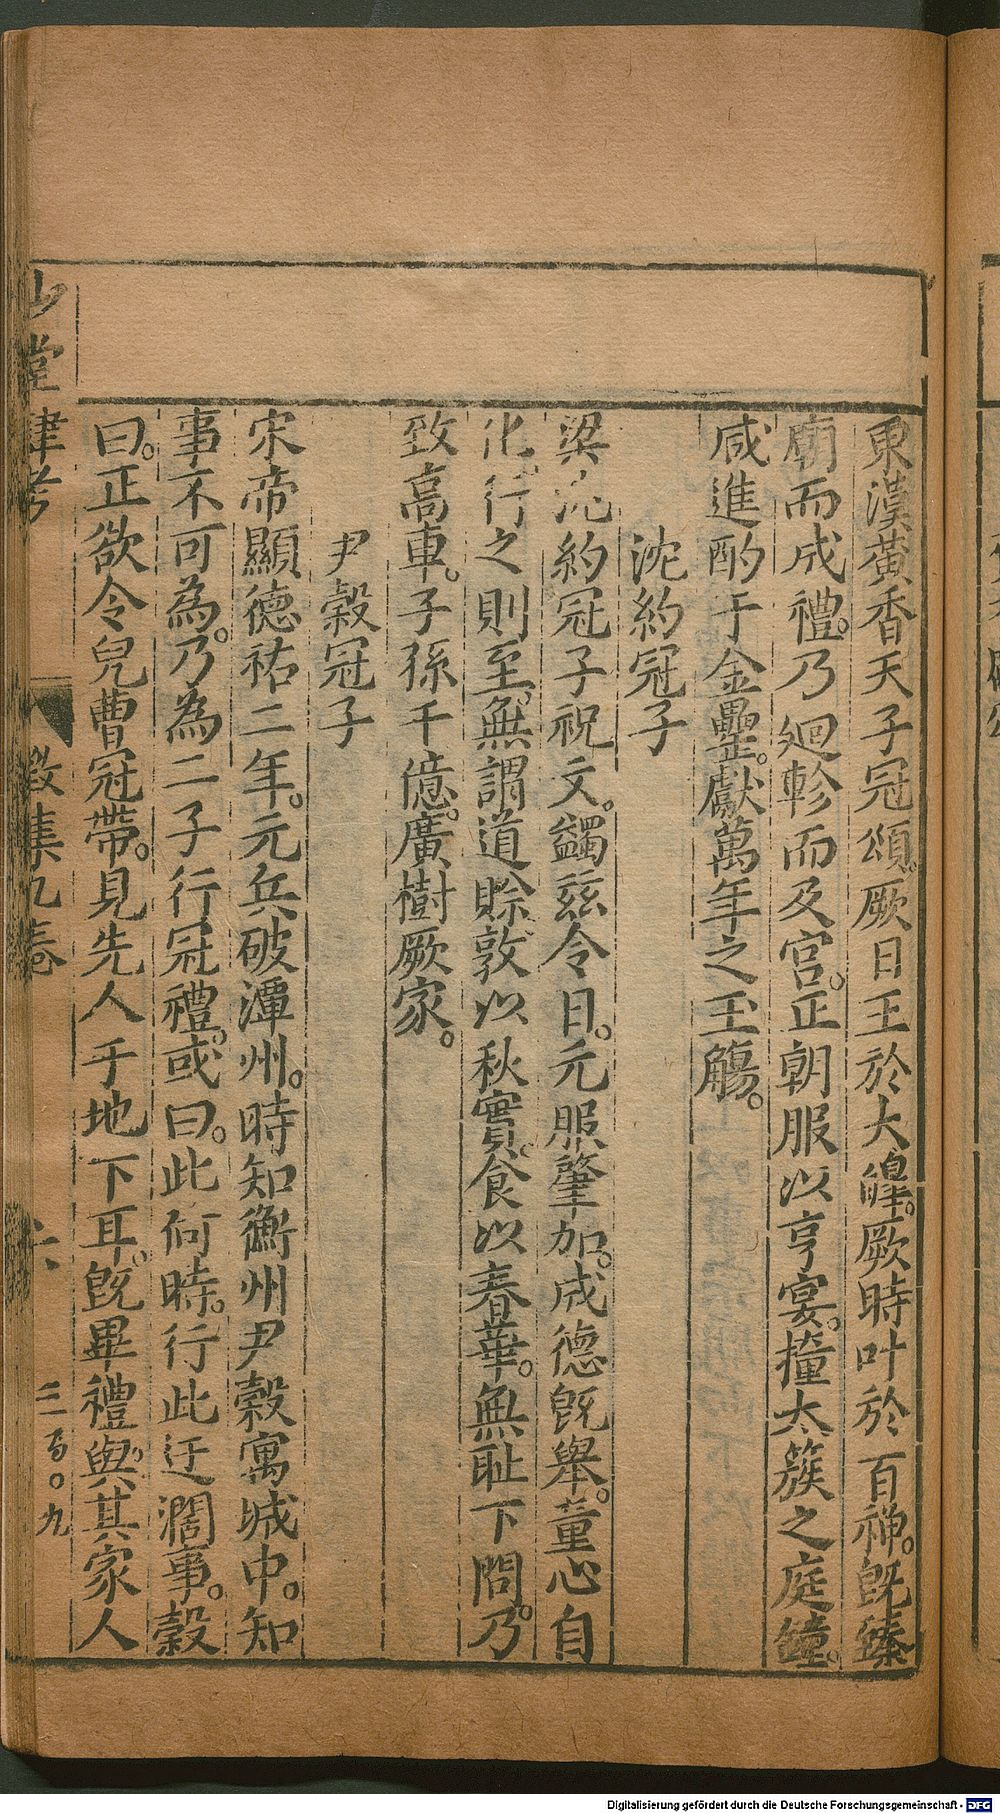 東漢黃香天子冠頌。厥日王於大皥。厥時叶於百禅。旣臻
廟而成禮。乃廻軫而及宮。正朝服以亨宴。撞太簇之庭鐘。
咸進酌于金罍。獻萬年之玉觴。
沈約冠子
梁沈約冠子祝文。蠲兹令日。元服肇加。成德旣舉。童心自
化。行之則至。無謂道賖。敦以秋實。食以春華。無耻下問。乃
致高車。子孫千億。廣樹厥家。
尹穀冠子
宋帝顯德祐二年。元兵破潭州。時知衡州尹穀寓城中。知
事不可為。乃為二子行冠禮。或曰。此何時。行此迂濶事。穀
曰。正欲令兒曹冠帶。見先人于地下耳。旣畢禮。與其家人
山堂肆考
徵集九卷
六
三百〇九
Digitalisierung gefördert durch die Deutsche Forschungsgemeinschaft - DFG